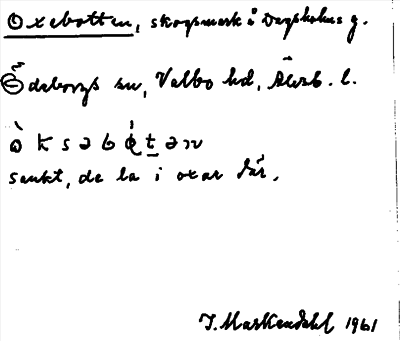 Oxebotten, skogsmark å Dagsholms g.
Ödeborgs sn, Valbo hd, Älvsb. l.
ò k s ə b ò̜ t ə n
sankt, de la i oxar där.
J. Markendahl 1961